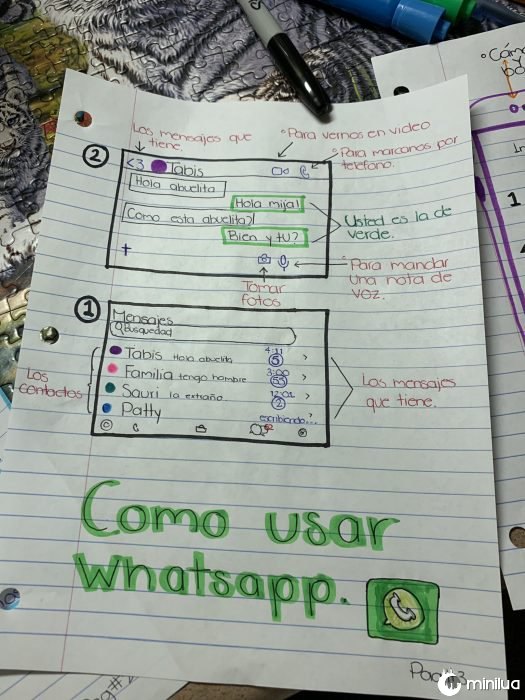 Los mensajes que
tiene.
Para vernos en video
Para marcanos por
telefono.
2
<3 Tabis
Hola abuelita
Hola mija!
Como esta abuelita?
Bien y tu?
Usted es la de
verde.
+
Tomar
fotos
Para mandar
una nota de
voz.
1
Mensajes
Busquedad
Tabis Hola abuelita 4:11 5 >
Familia tengo hambre 3:00 53 >
Sauri la extraño. 12:02 2
Patty escribiendo... >
Los
contactos
Los mensajes
que tiene.
Como usar
whatsapp.
Cóm
1
minilua